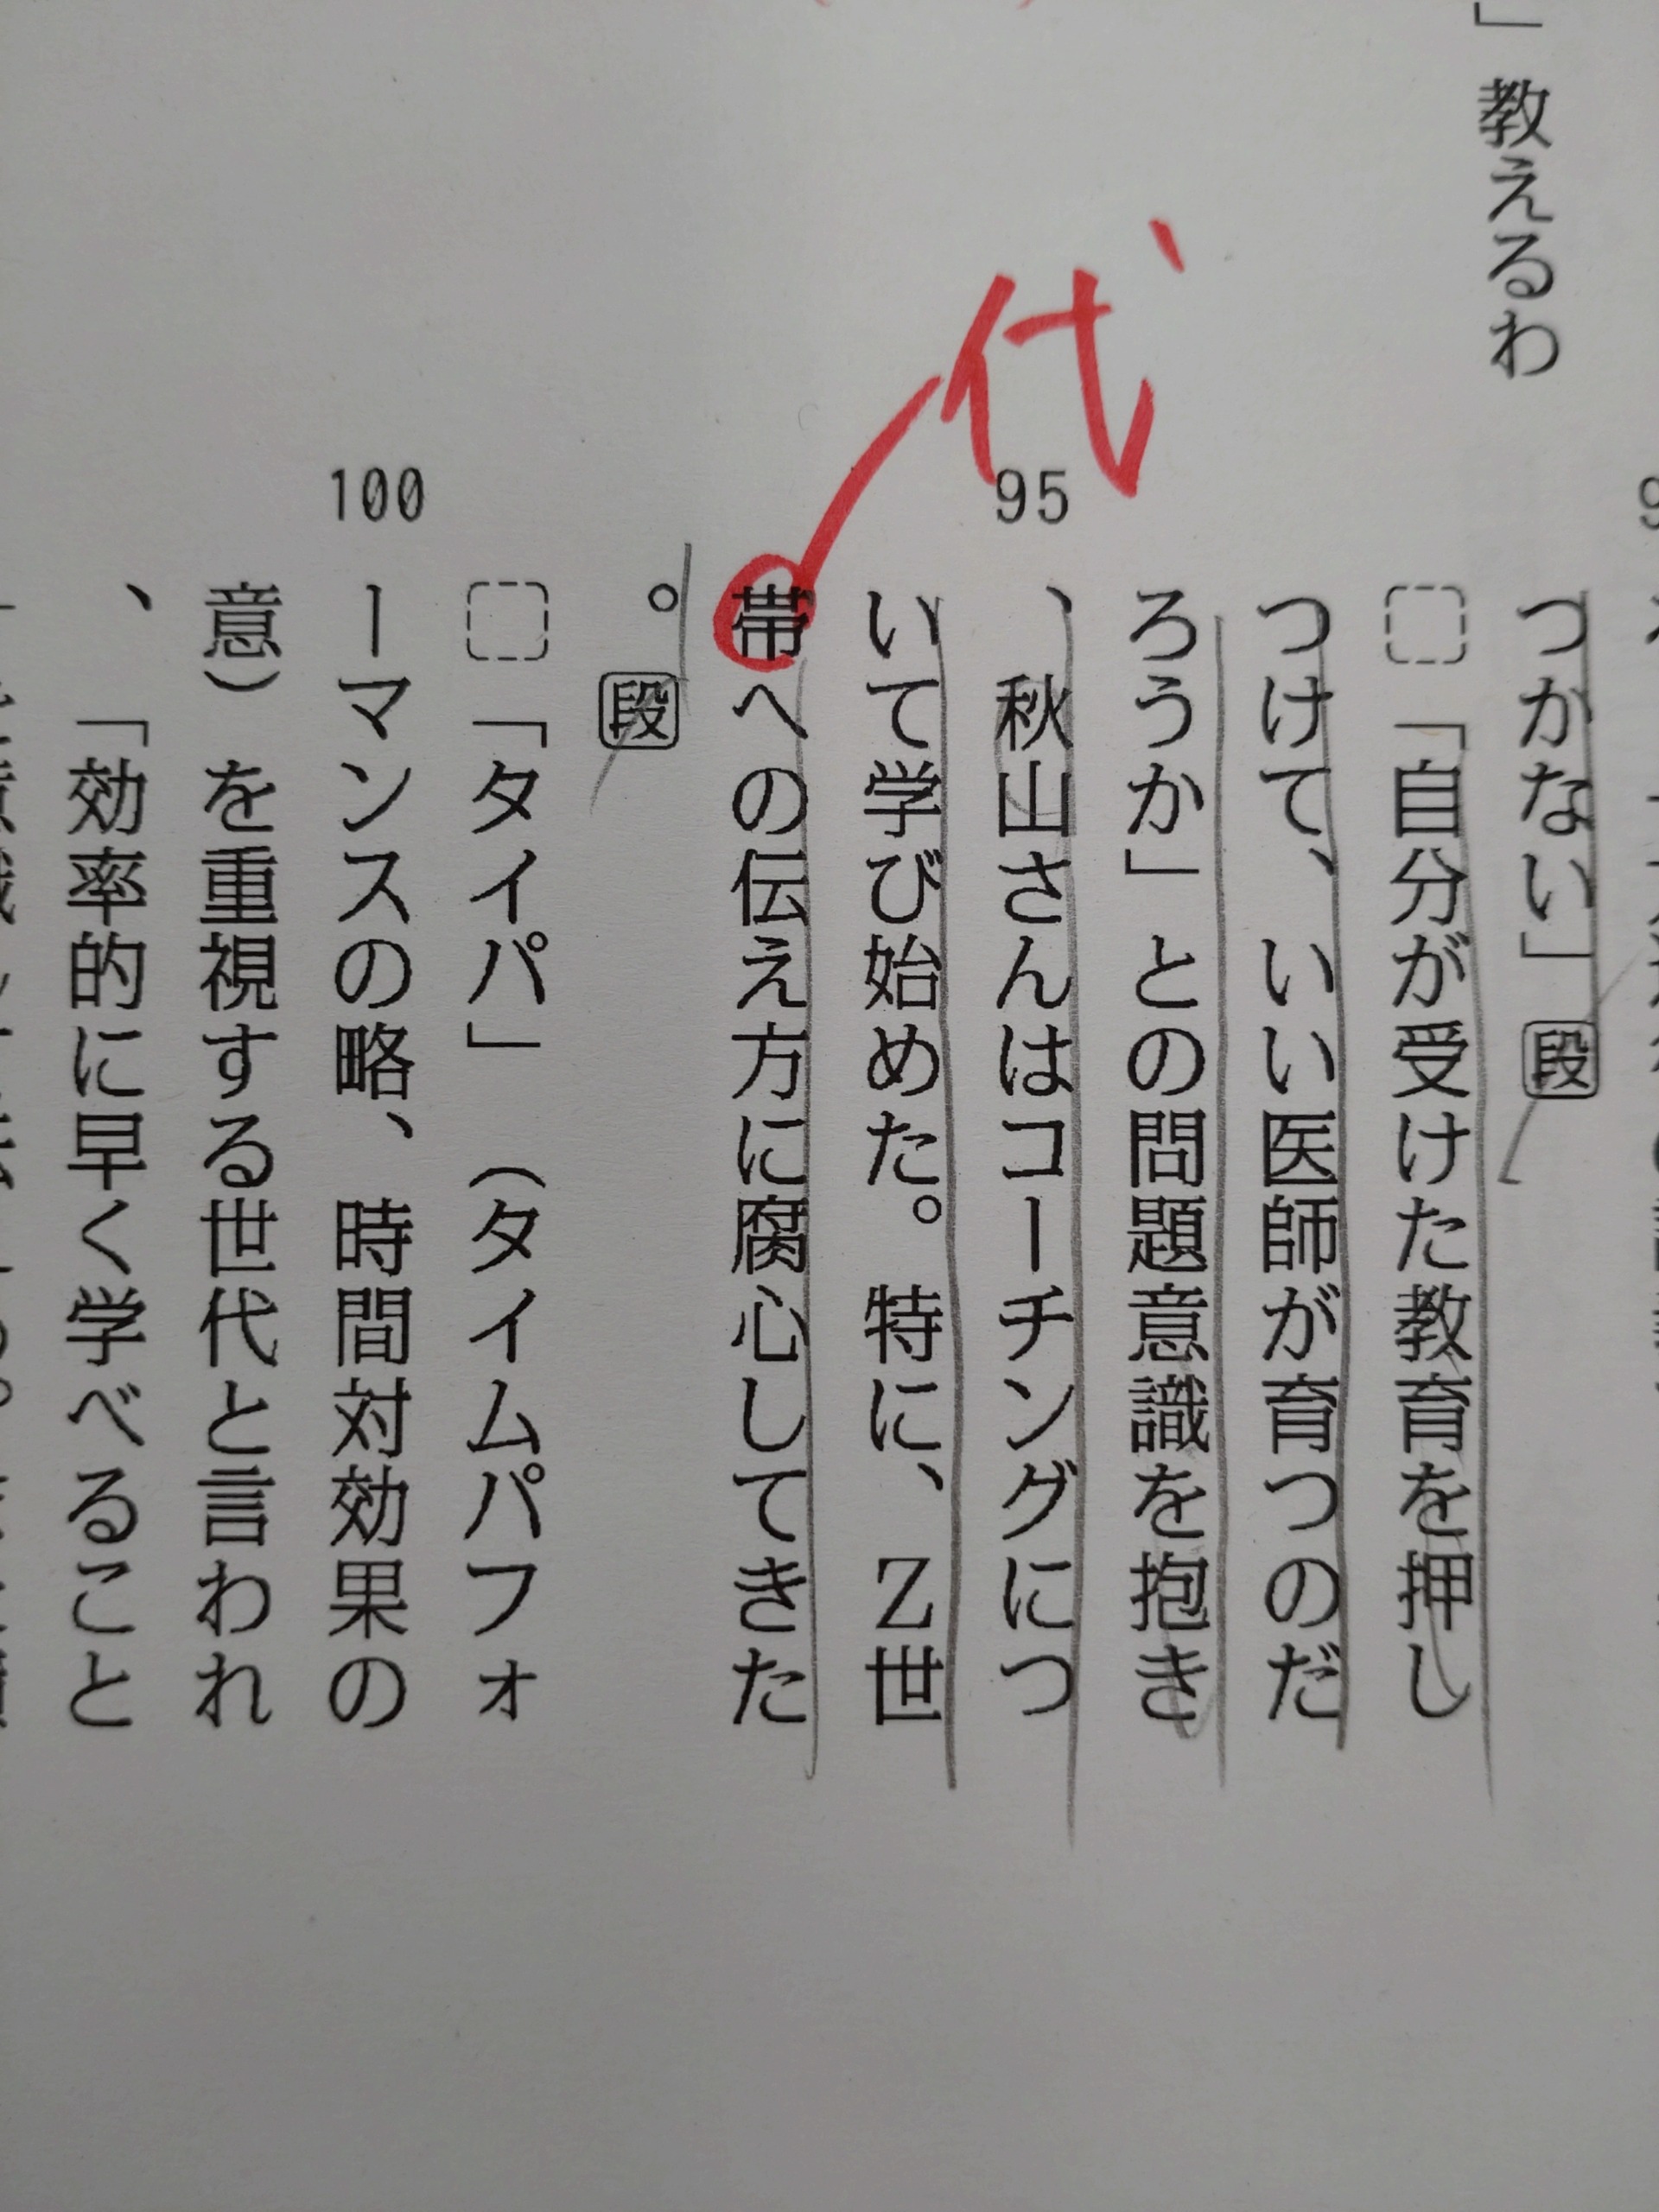 」教えるわ
つかない」段
「自分が受けた教育を押し
つけて、いい医師が育つのだ
ろうか」との問題意識を抱き
95
、秋山さんはコーチングにつ
いて学び始めた。特に、Z世
代
帯への伝え方に腐心してきた
。段
「タイパ」（タイムパフォ
100
ーマンスの略、時間対効果の
意）を重視する世代と言われ
、「効率的に早く学べること